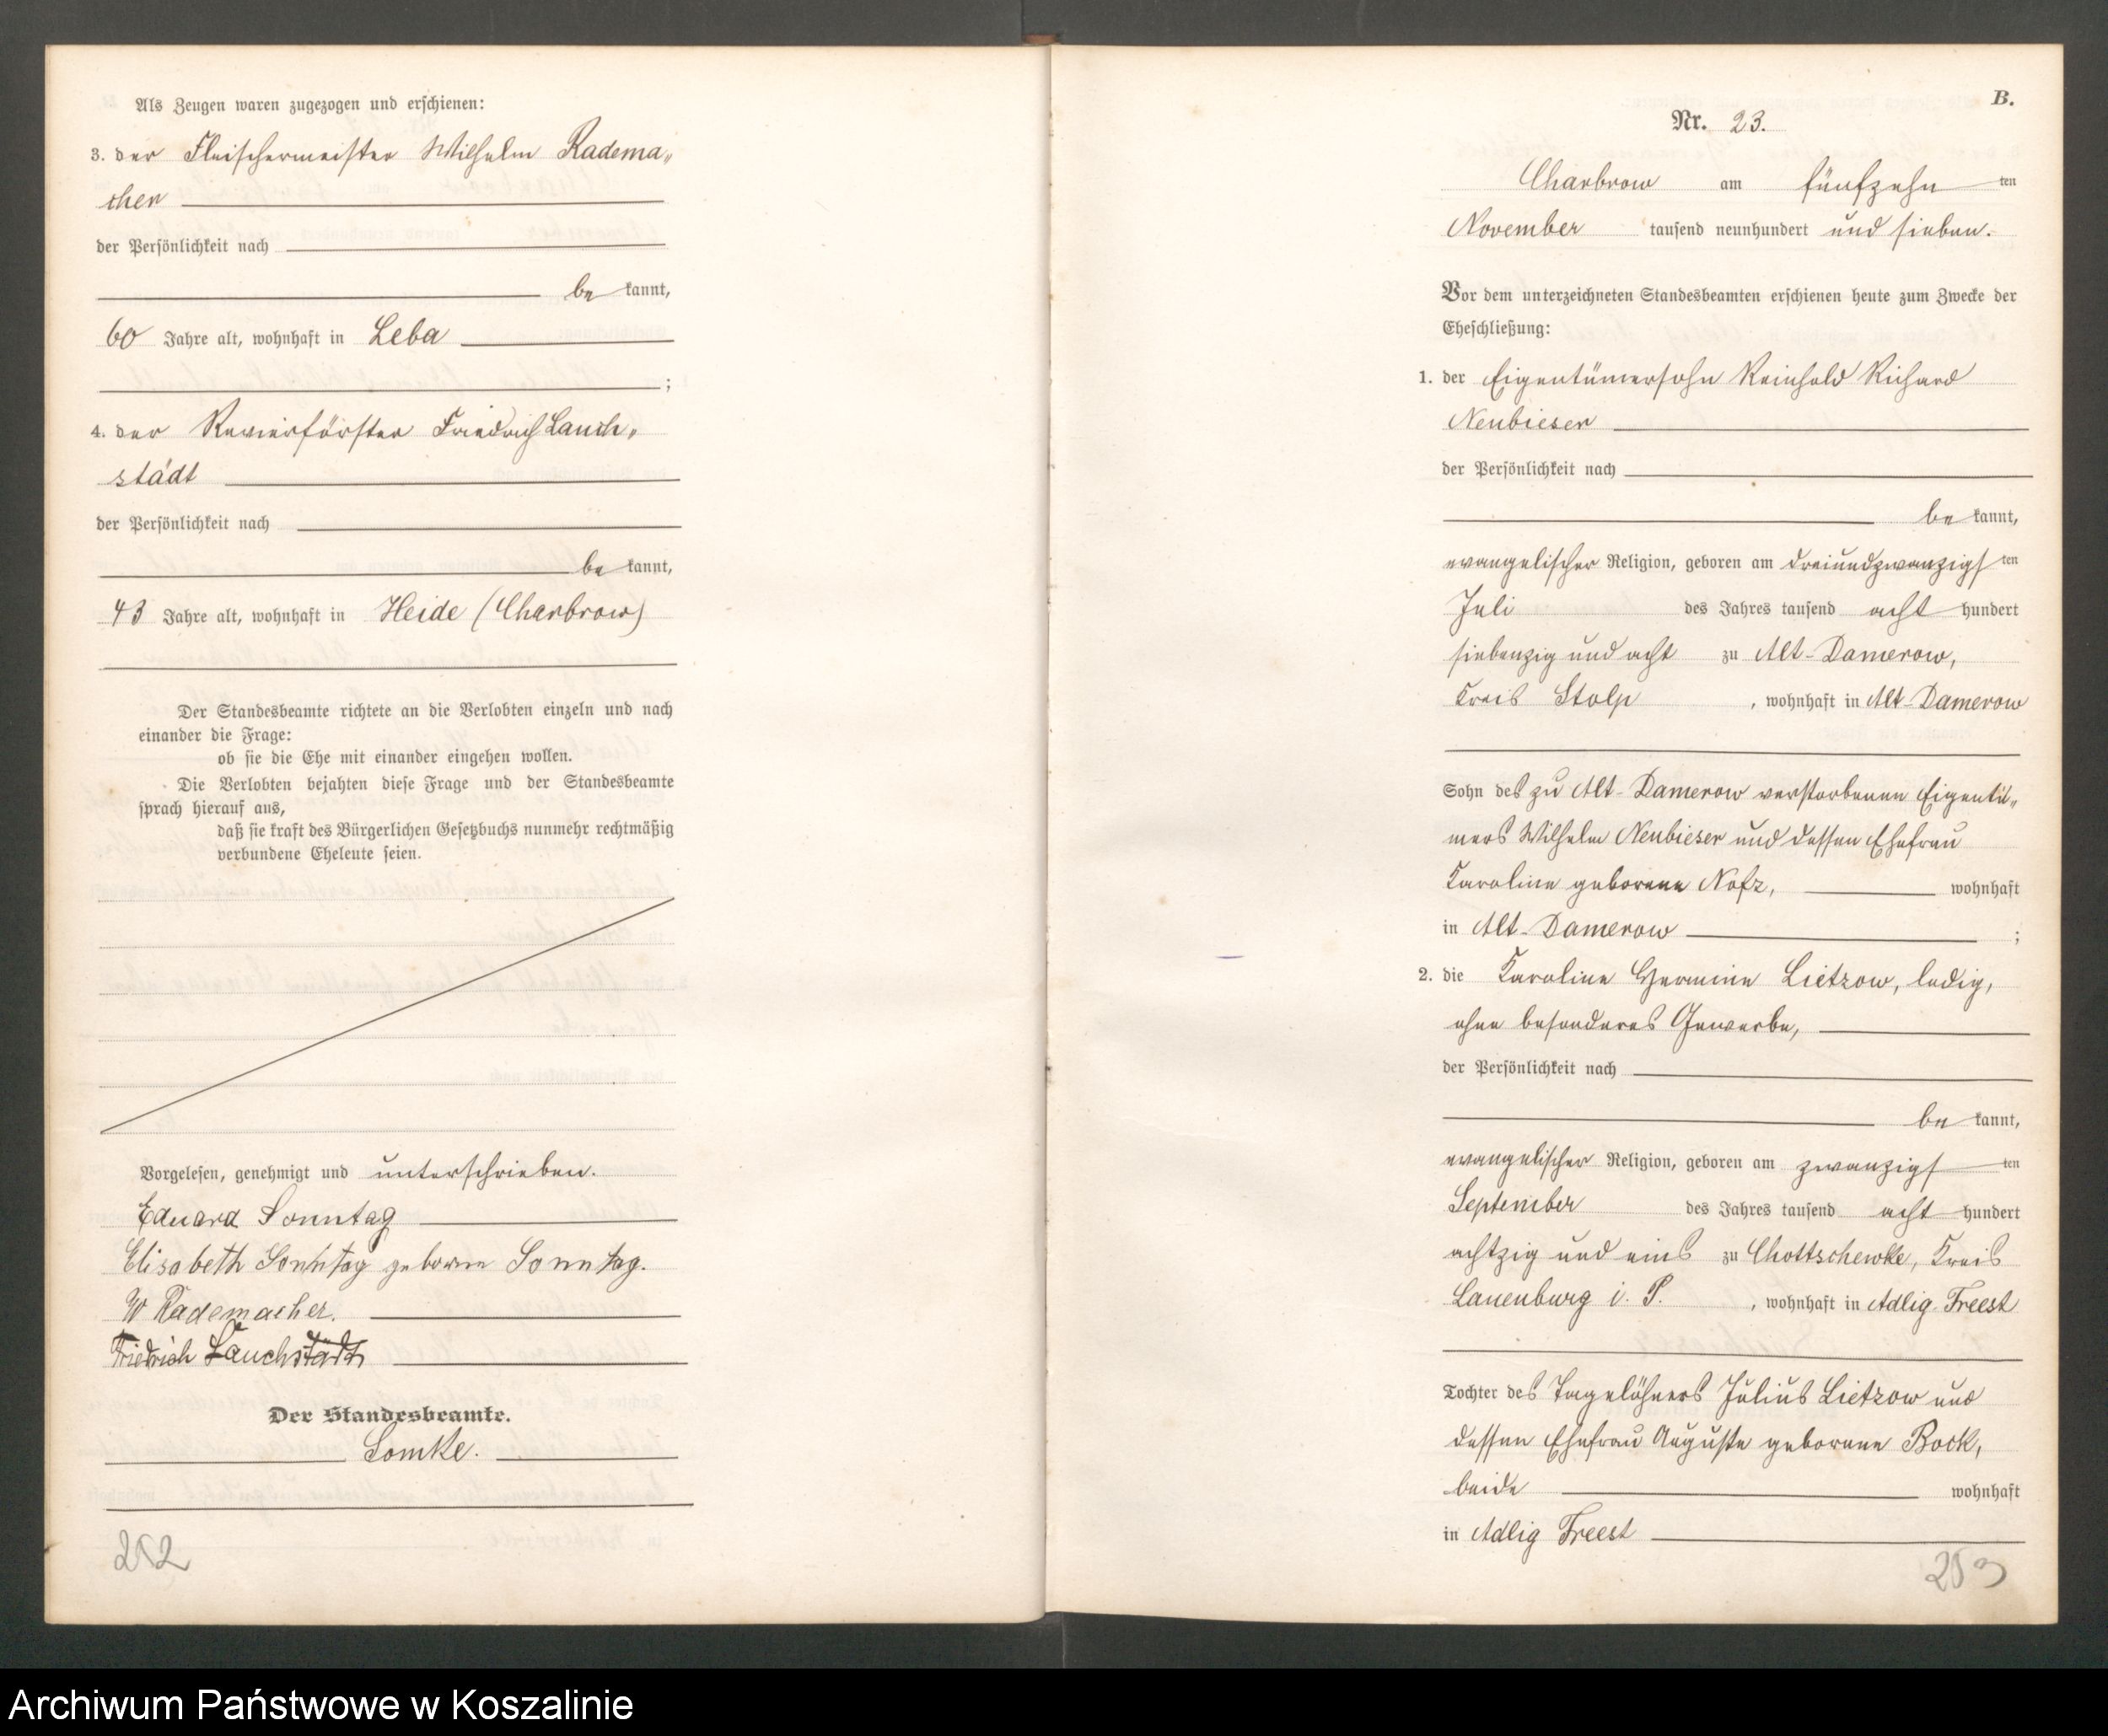 Als Zeugen waren zugezogen und erschienen:
3. der Fleischermeister Wilhelm Radema„
cher
der Persönlichkeit nach
be kannt,
60 Jahre alt, wohnhaft in Leba
;
4. der Revierförster Friedrich Lauch„
städt
der Persönlichkeit nach
be kannt,
43 Jahre alt, wohnhaft in Heide (Charbrow)
Der Standesbeamte richtete an die Verlobten einzeln und nach
einander die Frage:
ob sie die Ehe mit einander eingehen wollen.
Die Verlobten bejahten diese Frage und der Standesbeamte
sprach hierauf aus,
daß sie kraft des Bürgerlichen Gesetzbuchs nunmehr rechtmäßig
verbundene Eheleute seien.
Vorgelesen, genehmigt und unterschrieben.
Eduard Sonntag
Elisabeth Sonntag geborne Sonntag.
W Rademacher.
Friedrich Lauchstädt
Der Standesbeamte.
Lomke.
252
B.
Nr. 23.
Charbrow am fünfzehn ten
November tausend neunhundert und sieben.
Vor dem unterzeichneten Standesbeamten erschienen heute zum Zwecke der
Eheschließung:
1. der Eigentümersohn Reinhold Richard
Neubieser
der Persönlichkeit nach
be kannt,
evangelischer Religion, geboren am dreiundzwanzigs ten
Juli des Jahres tausend acht hundert
siebenzig und acht zu Alt-Damerow,
Kreis Stolp , wohnhaft in Alt-Damerow
Sohn des zu Alt-Damerow verstorbenen Eigentü„
mers Wilhelm Neubieser und dessen Ehefrau
Karoline geborene Nofz, wohnhaft
in Alt-Damerow ;
2. die Karoline Hermine Lietzow, ledig,
ohne besonderes Gewerbe,
der Persönlichkeit nach
be kannt,
evangelischer Religion, geboren am zwanzigs ten
September des Jahres tausend acht hundert
achtzig und eins zu Chottschewke, Kreis
Lauenburg i. P. , wohnhaft in Adlig Freest
Tochter des Tagelöhners Julius Lietzow und
dessen Ehefrau Auguste geborene Bock,
beide wohnhaft
in Adlig Freest
253
Archiwum Państwowe w Koszalinie